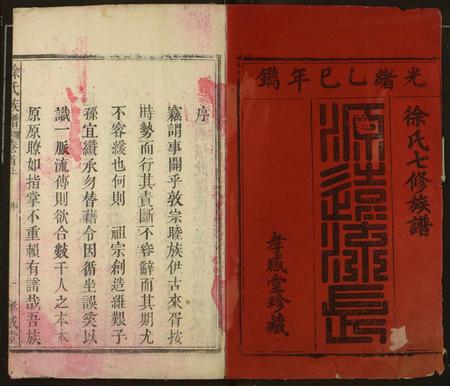 光緒乙巳年鐫
徐氏七修族譜
源遠流長
孝感堂珍藏
序
竊謂事關乎敦宗睦族伊古來胥按
時勢而行其責斷不容辭而其期尤
不容緩也何則　祖宗創造維艱子
孫宜纘承勿替藉令因循坐誤奚以
識一脈流傳則欲合數千人之本本
原原瞭如指掌不重賴有譜哉吾族
徐氏族譜
卷首上
序
一
孝感堂